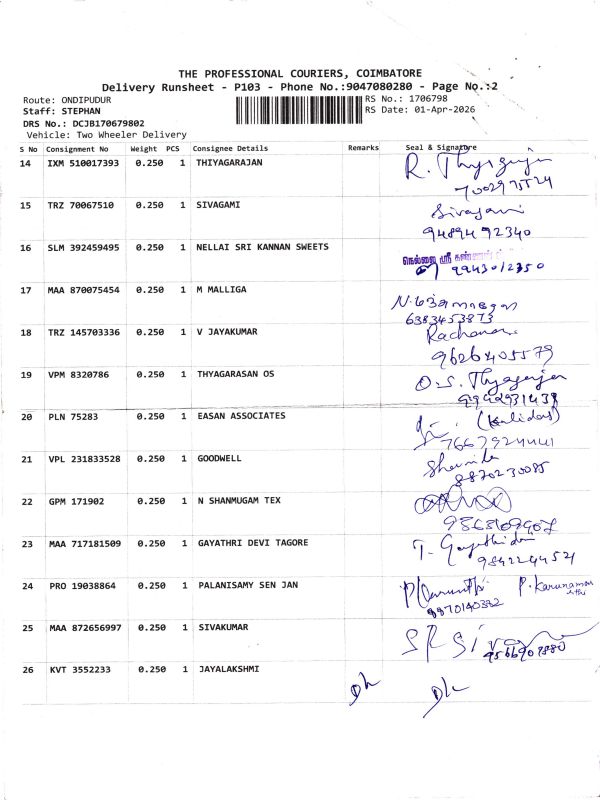 THE PROFESSIONAL COURIERS, COIMBATORE
Delivery Runsheet - P103 - Phone No.:9047080280 - Page No.:2
Route: ONDIPUDUR
Staff: STEPHAN
DRS No.: DCJB170679802
Vehicle: Two Wheeler Delivery
RS No.: 1706798
RS Date: 01-Apr-2026
S No Consignment No Weight PCS Consignee Details Remarks Seal & Signature
14 IXM 510017393 0.250 1 THIYAGARAJAN R.
15 TRZ 70067510 0.250 1 SIVAGAMI Sivagami
9489492340
16 SLM 392459495 0.250 1 NELLAI SRI KANNAN SWEETS நெல்லை ஸ்ரீ கண்ணன்
9943012350
17 MAA 870075454 0.250 1 M MALLIGA
6383453873
18 TRZ 145703336 0.250 1 V JAYAKUMAR Rachana
9626405579
19 VPM 8320786 0.250 1 THYAGARASAN OS O.S.
9942931438
20 PLN 75283 0.250 1 EASAN ASSOCIATES (Kalidas)
21 VPL 231833528 0.250 1 GOODWELL
8870230085
22 GPM 171902 0.250 1 N SHANMUGAM TEX
23 MAA 717181509 0.250 1 GAYATHRI DEVI TAGORE T.
24 PRO 19038864 0.250 1 PALANISAMY SEN JAN
25 MAA 872656997 0.250 1 SIVAKUMAR
26 KVT 3552233 0.250 1 JAYALAKSHMI